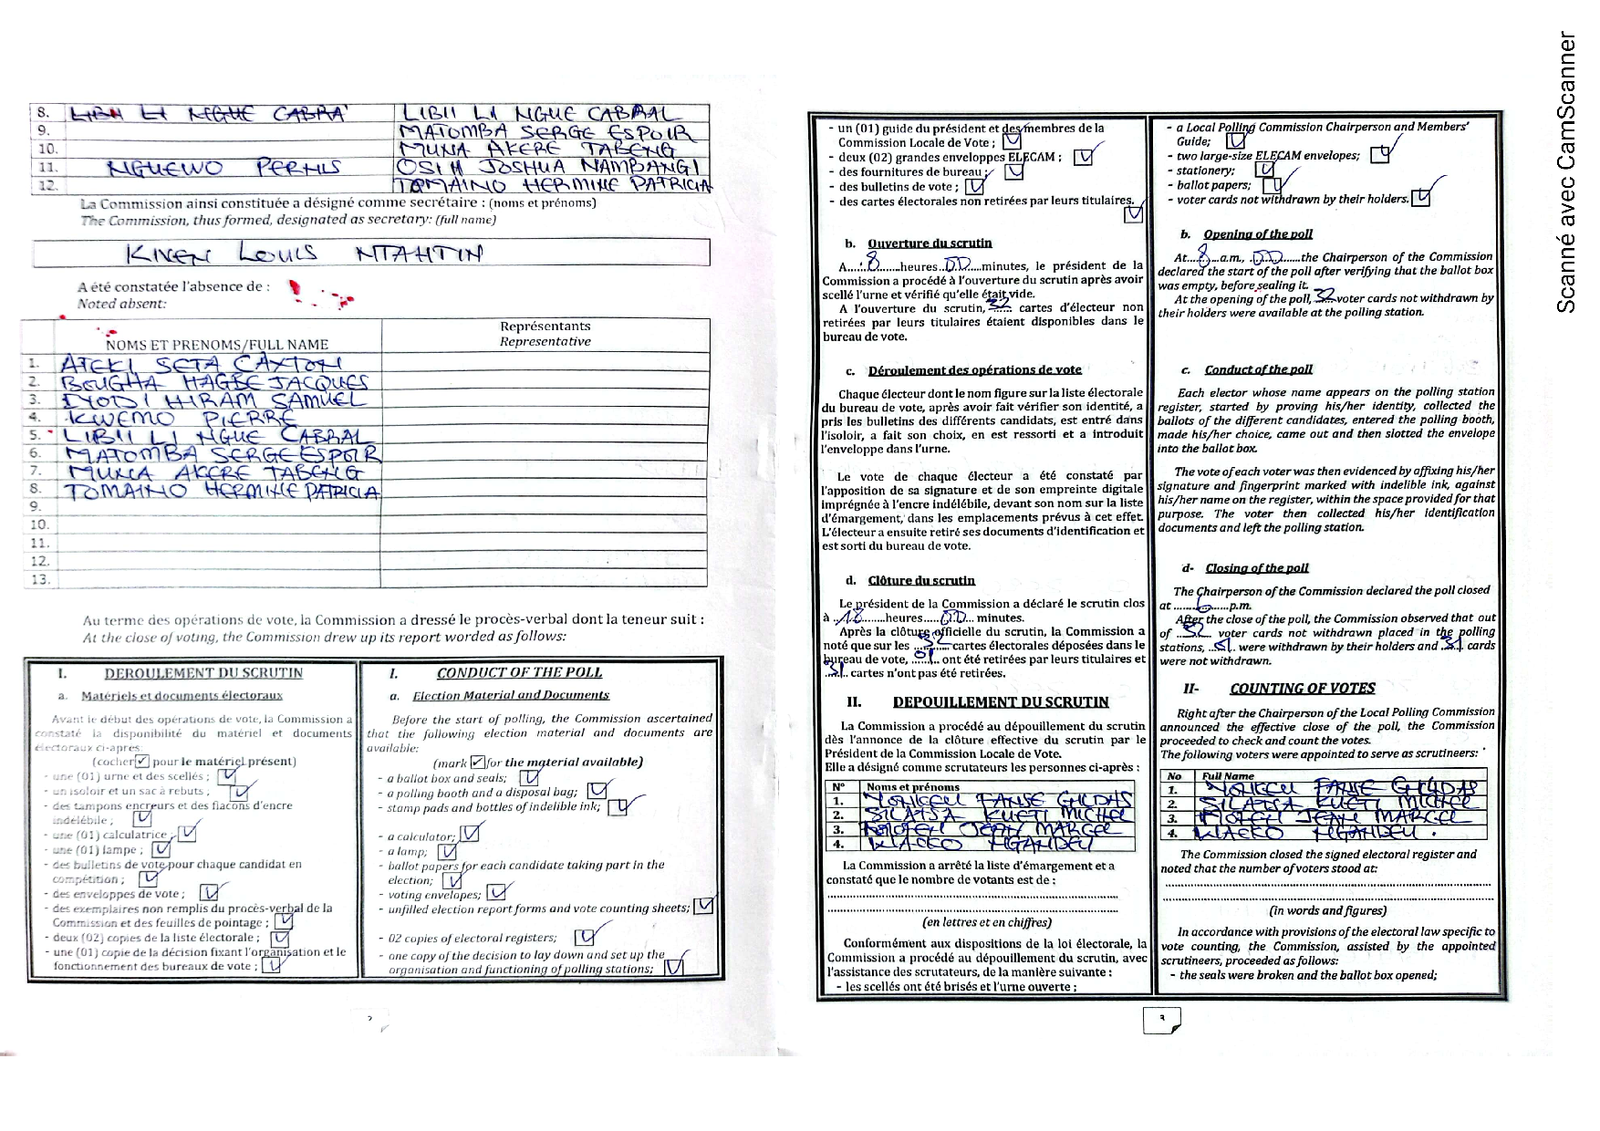 8. LIBII LI NGUE CABRA LIBII LI NGUE CABRAL
9. MATOMBA SERGE ESPOIR
10. MUNA AKERE TABENG
11. NGUEWO PERHS OSIH JOSHUA NAMBANGI
12. TOMAINO HERMINE PATRICIA
La Commission ainsi constituée a désigné comme secrétaire : (noms et prénoms)
The Commission, thus formed, designated as secretary: (full name)
KIVEN LOUIS NTAHTIN
A été constatée l'absence de :
Noted absent:
NOMS ET PRENOMS/FULL NAME
Représentants
Representative
1. ATEKI SETA CAXTON
2. BOUGHA HAGBE JACQUES
3. IYODI HIRAM SAMUEL
4. KWEMO PIERRE
5. LIBII LI NGUE CABRAL
6. MATOMBA SERGE ESPOIR
7. MUNA AKERE TABENG
8. TOMAINO HERMINE PATRICIA
9.
10.
11.
12.
13.
Au terme des opérations de vote, la Commission a dressé le procès-verbal dont la teneur suit :
At the close of voting, the Commission drew up its report worded as follows:
I. DEROULEMENT DU SCRUTIN
a. Matériels et documents électoraux
Avant le début des opérations de vote, la Commission a
constaté la disponibilité du matériel et documents
électoraux ci-après:
(cocher ✓ pour le matériel présent)
- une (01) urne et des scellés ;
- un isoloir et un sac à rebuts ;
- des tampons encreurs et des flacons d'encre
indélébile ;
- une (01) calculatrice ;
- une (01) lampe ;
- des bulletins de vote pour chaque candidat en
compétition ;
- des enveloppes de vote ;
- des exemplaires non remplis du procès-verbal de la
Commission et des feuilles de pointage ;
- deux (02) copies de la liste électorale ;
- une (01) copie de la décision fixant l'organisation et le
fonctionnement des bureaux de vote ;
I. CONDUCT OF THE POLL
a. Election Material and Documents
Before the start of polling, the Commission ascertained
that the following election material and documents are
available:
(mark ✓ for the material available)
- a ballot box and seals;
- a polling booth and a disposal bag;
- stamp pads and bottles of indelible ink;
- a calculator;
- a lamp;
- ballot papers for each candidate taking part in the
election;
- voting envelopes;
- unfilled election report forms and vote counting sheets;
- 02 copies of electoral registers;
- one copy of the decision to lay down and set up the
organisation and functioning of polling stations;
- un (01) guide du président et des membres de la
Commission Locale de Vote ;
- deux (02) grandes enveloppes ELECAM ;
- des fournitures de bureau ;
- des bulletins de vote ;
- des cartes électorales non retirées par leurs titulaires.
b. Ouverture du scrutin
A......8......heures..00...minutes, le président de la
Commission a procédé à l'ouverture du scrutin après avoir
scellé l'urne et vérifié qu'elle était vide.
A l'ouverture du scrutin, 32 cartes d'électeur non
retirées par leurs titulaires étaient disponibles dans le
bureau de vote.
c. Déroulement des opérations de vote
Chaque électeur dont le nom figure sur la liste électorale
du bureau de vote, après avoir fait vérifier son identité, a
pris les bulletins des différents candidats, est entré dans
l'isoloir, a fait son choix, en est ressorti et a introduit
l'enveloppe dans l'urne.
Le vote de chaque électeur a été constaté par
l'apposition de sa signature et de son empreinte digitale
imprégnée à l'encre indélébile, devant son nom sur la liste
d'émargement, dans les emplacements prévus à cet effet.
L'électeur a ensuite retiré ses documents d'identification et
est sorti du bureau de vote.
d. Clôture du scrutin
Le président de la Commission a déclaré le scrutin clos
à ..18.......heures.....00.... minutes.
Après la clôture officielle du scrutin, la Commission a
noté que sur les ...32... cartes électorales déposées dans le
bureau de vote, ...01... ont été retirées par leurs titulaires et
..31.. cartes n'ont pas été retirées.
II. DEPOUILLEMENT DU SCRUTIN
La Commission a procédé au dépouillement du scrutin
dès l'annonce de la clôture effective du scrutin par le
Président de la Commission Locale de Vote.
Elle a désigné comme scrutateurs les personnes ci-après :
N° Noms et prénoms
1. GILDAS
2. SILATSA KUETI MICHEL
3. JEAN MARCEL
4.
La Commission a arrêté la liste d'émargement et a
constaté que le nombre de votants est de :
(en lettres et en chiffres)
Conformément aux dispositions de la loi électorale, la
Commission a procédé au dépouillement du scrutin, avec
l'assistance des scrutateurs, de la manière suivante :
- les scellés ont été brisés et l'urne ouverte ;
- a Local Polling Commission Chairperson and Members'
Guide;
- two large-size ELECAM envelopes;
- stationery;
- ballot papers;
- voter cards not withdrawn by their holders.
b. Opening of the poll
At...8....a.m., ..00......the Chairperson of the Commission
declared the start of the poll after verifying that the ballot box
was empty, before sealing it.
At the opening of the poll, 32 voter cards not withdrawn by
their holders were available at the polling station.
c. Conduct of the poll
Each elector whose name appears on the polling station
register, started by proving his/her identity, collected the
ballots of the different candidates, entered the polling booth,
made his/her choice, came out and then slotted the envelope
into the ballot box.
The vote of each voter was then evidenced by affixing his/her
signature and fingerprint marked with indelible ink, against
his/her name on the register, within the space provided for that
purpose. The voter then collected his/her identification
documents and left the polling station.
d- Closing of the poll
The Chairperson of the Commission declared the poll closed
at .........6.....p.m.
After the close of the poll, the Commission observed that out
of ...32... voter cards not withdrawn placed in the polling
stations, ..01.. were withdrawn by their holders and 31 cards
were not withdrawn.
II- COUNTING OF VOTES
Right after the Chairperson of the Local Polling Commission
announced the effective close of the poll, the Commission
proceeded to check and count the votes.
The following voters were appointed to serve as scrutineers:
No Full Name
1. GILDAS
2. SILATSA KUETI MICHEL
3. JEAN MARCEL
4.
The Commission closed the signed electoral register and
noted that the number of voters stood at:
(in words and figures)
In accordance with provisions of the electoral law specific to
vote counting, the Commission, assisted by the appointed
scrutineers, proceeded as follows:
- the seals were broken and the ballot box opened;
3
Scanné avec CamScanner